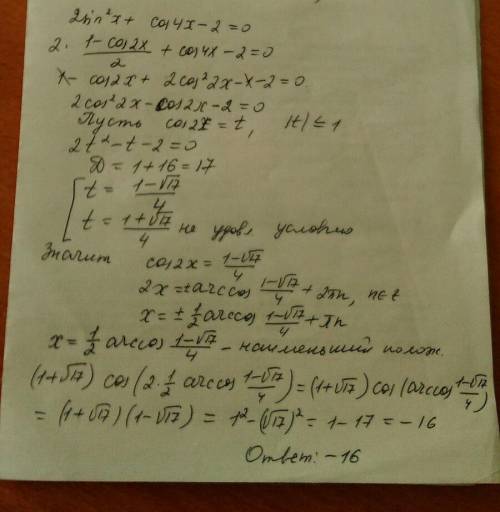 2sin²x + cos4x - 2 = 0
2 · (1 - cos2x)/2 + cos4x - 2 = 0
1 - cos2x + 2cos²2x - 1 - 2 = 0
2cos²2x - cos2x - 2 = 0
Пусть cos2x = t, |t| ≤ 1
2t² - t - 2 = 0
D = 1 + 16 = 17
t = (1 - √17)/4
t = (1 + √17)/4 не удовл. условию
Значит cos2x = (1 - √17)/4
2x = ± arccos (1 - √17)/4 + 2πn, n∈z
x = ± 1/2 arccos (1 - √17)/4 + πn
x = 1/2 arccos (1 - √17)/4 - наименьший полож.
(1 + √17) cos(2 · 1/2 arccos (1 - √17)/4) = (1 + √17) cos(arccos (1 - √17)/4)
= (1 + √17)(1 - √17) = 1² - (√17)² = 1 - 17 = -16
Ответ: -16